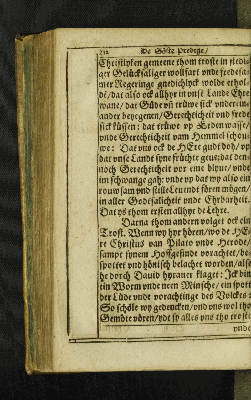 212 De Söste Predige/
Christlyken gemeene thom troste in stedi-
ger Gelücksaliger wolfart vnde fredesa-
mer Regeringe gnedichlyck wolde erhol-
de/ dat also ock allhyr in vnse Lande Ehre
wane/ dat Güde vñ trüwe sick vnderein-
ander begegenen/ Gerechticheit vnd frede
sick küssen: dat trüwe vp Erden wasse/
vnde Gerechticheit vam Hemmel schou-
we: Dat vns ock de HEre gudt doh/ vp
dat vnse Landt syne früchte geue: dat den-
noch Gerechticheit vor eme blyue/ vnde
im schwange gah: vnde vp dat wy also ein
rouwsam vnd stille Leuendt fören mögen/
in aller Godtsalicheit vnde Ehrbarheit.
Dat ys thom ersten allhyr de Lehre.
Darna thom andern volget ock ein
Trost. Wenn wy hyr hören/ wo de HE-
re Christus van Pilato vnde Herode/
sampt synem Hoffgesinde vorachtet/ be-
spottet vnd hönisch belachet worden/ alse
he dorch Dauid thouorn klaget: Ick bin
ein Worm vnde neen Minsche/ ein spott
der Lüde vnde vorachtinge des Volckes
So schöle wy gedencken/ vnd vns wol tho
Gemöte vören/ ydt sy alles vns tho troste
vnde